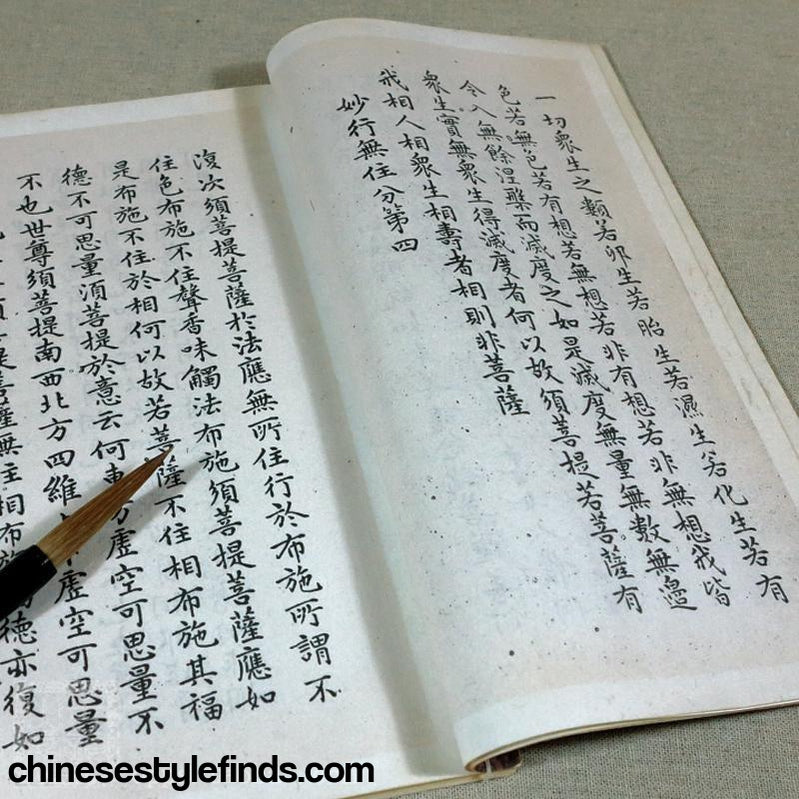 一切衆生之類若卵生若胎生若濕生若化生若有
色若無色若有想若無想若非有想若非無想我皆
令入無餘涅槃而滅度之如是滅度無量無數無邊
衆生實無衆生得滅度者何以故須菩提若菩薩有
我相人相衆生相壽者相則非菩薩
妙行無住分第四
復次須菩提菩薩於法應無所住行於布施所謂不
住色布施不住聲香味觸法布施須菩提菩薩應如
是布施不住於相何以故若菩薩不住相布施其福
德不可思量須菩提於意云何東方虛空可思量不
不也世尊須菩提南西北方四維虛空可思量
菩提菩薩無住相布施德亦復如
chinesestylefinds.com